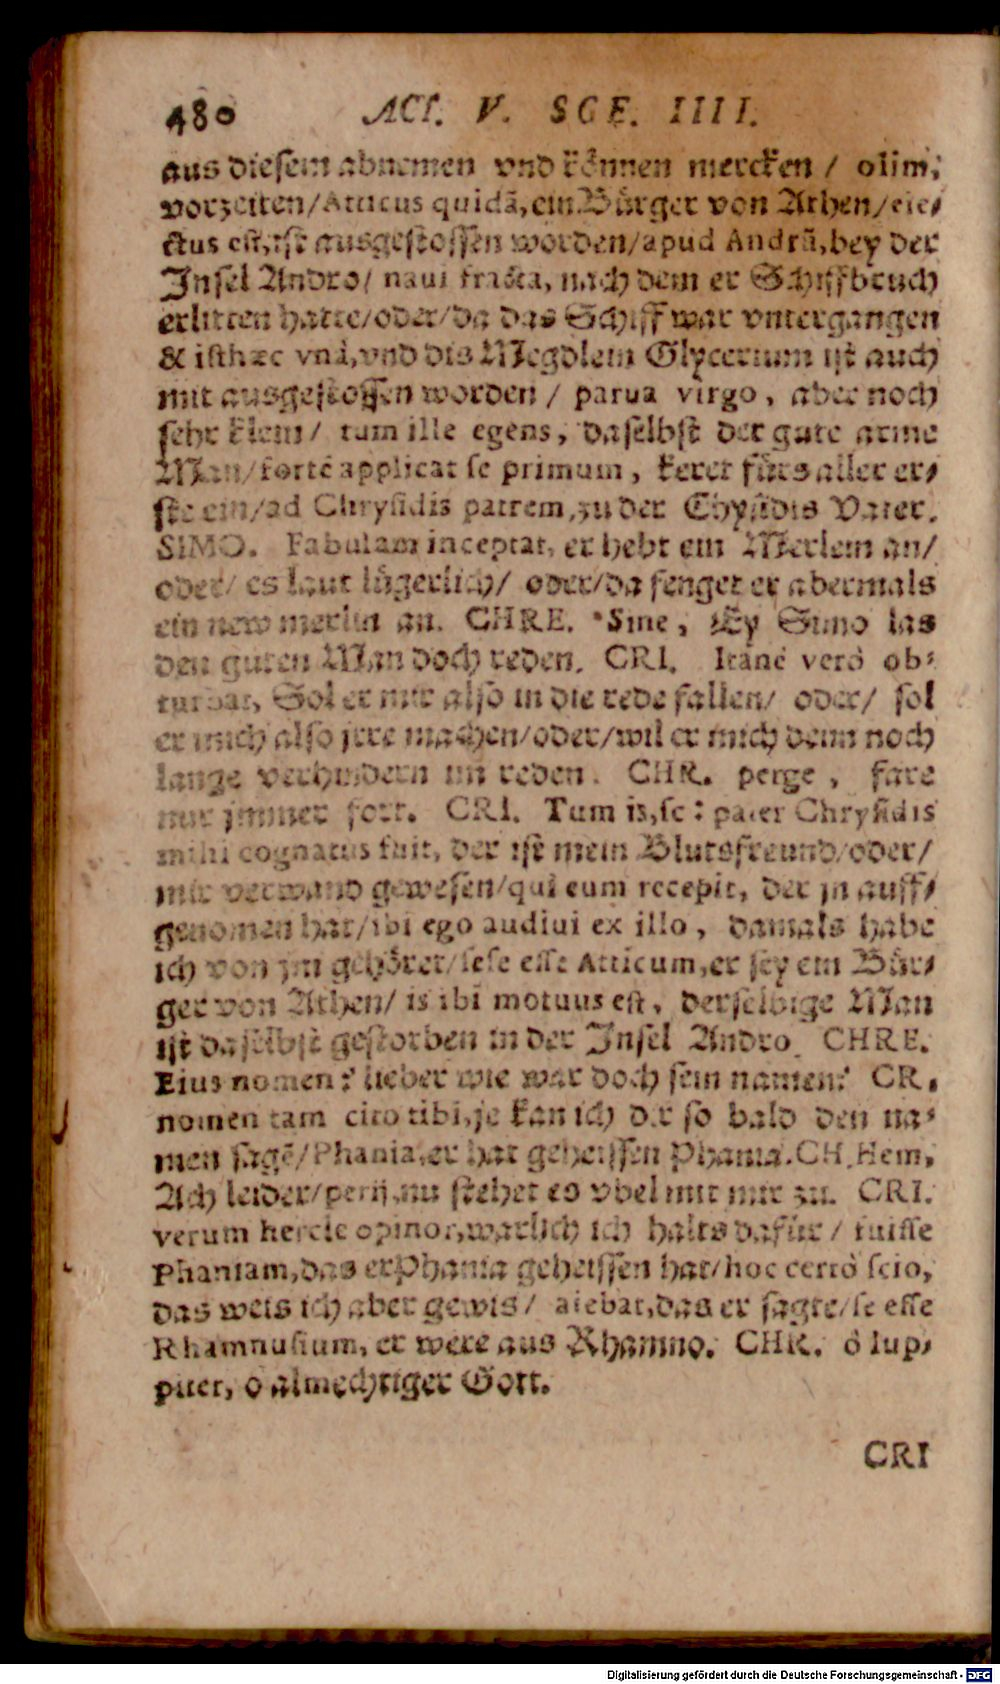 480 ACT. V. SCE. IIII.
aus diesem abnemen vnd koͤnnen mercken / olim,
vorzeiten/Atticus quidã, ein Buͤrger von Athen/eie⸗
ctus est, ist ausgestossen worden/apud Andrũ, bey der
Insel Andro/ naui fracta, nach dem er Schiffbruch
erlitten hatte/oder/da das Schiff war vntergangen
& isthæc vnà, vnd dis Megdlein Glycerium ist auch
mit ausgestossen worden / parua virgo, aber noch
sehr klein/ tum ille egens, daselbst der gute arme
Man/fortè applicat se primum, keret fuͤrs aller er⸗
ste ein/ad Chrysidis patrem, zu der Chysidis Vater.
SIMO. Fabulam inceptat, er hebt ein Merlein an/
oder/ es laut luͤgerlich/ oder/da fenget er abermals
ein new merlin an. CHRE. Sine, Ey Simo las
den guten Man doch reden. CRI. Itané verò ob⸗
turbat, Sol er mir also in die rede fallen/ oder/ sol
er mich also jrre machen/oder/wil er mich denn noch
lange verhindern im reden. CHR. perge, fare
nur jmmer fort. CRI. Tum is, sc: pater Chrysidis
mihi cognatus fuit, der ist mein Blutsfreund/oder/
mir verwand gewesen/qui eum recepit, der jn auff⸗
genomen hat/ibi ego audiui ex illo, damals habe
ich von jm gehoͤret/sese esse Atticum, er sey ein Buͤr⸗
ger von Athen/ is ibi motuus est, derselbige Man
ist daselbst gestorben in der Insel Andro. CHRE.
Eius nomen? lieber wie war doch sein namen? CR.
nomen tam cito tibi, je kan ich dir so bald den na⸗
men sagẽ/Phania, er hat geheissen Phania. CH. Hem,
Ach leider/perij, nu stehet es vbel mit mir zu. CRI.
verum hercle opinor, warlich ich halts dafuͤr / fuisse
Phaniam, das er Phania geheissen hat/hoc certò scio,
das weis ich aber gewis/ aiebat, das er sagte/se esse
Rhamnusium, er were aus Rhamno. CHR. ô Iup⸗
piter, o almechtiger Gott.
CRI
Digitalisierung gefördert durch die Deutsche Forschungsgemeinschaft - DFG